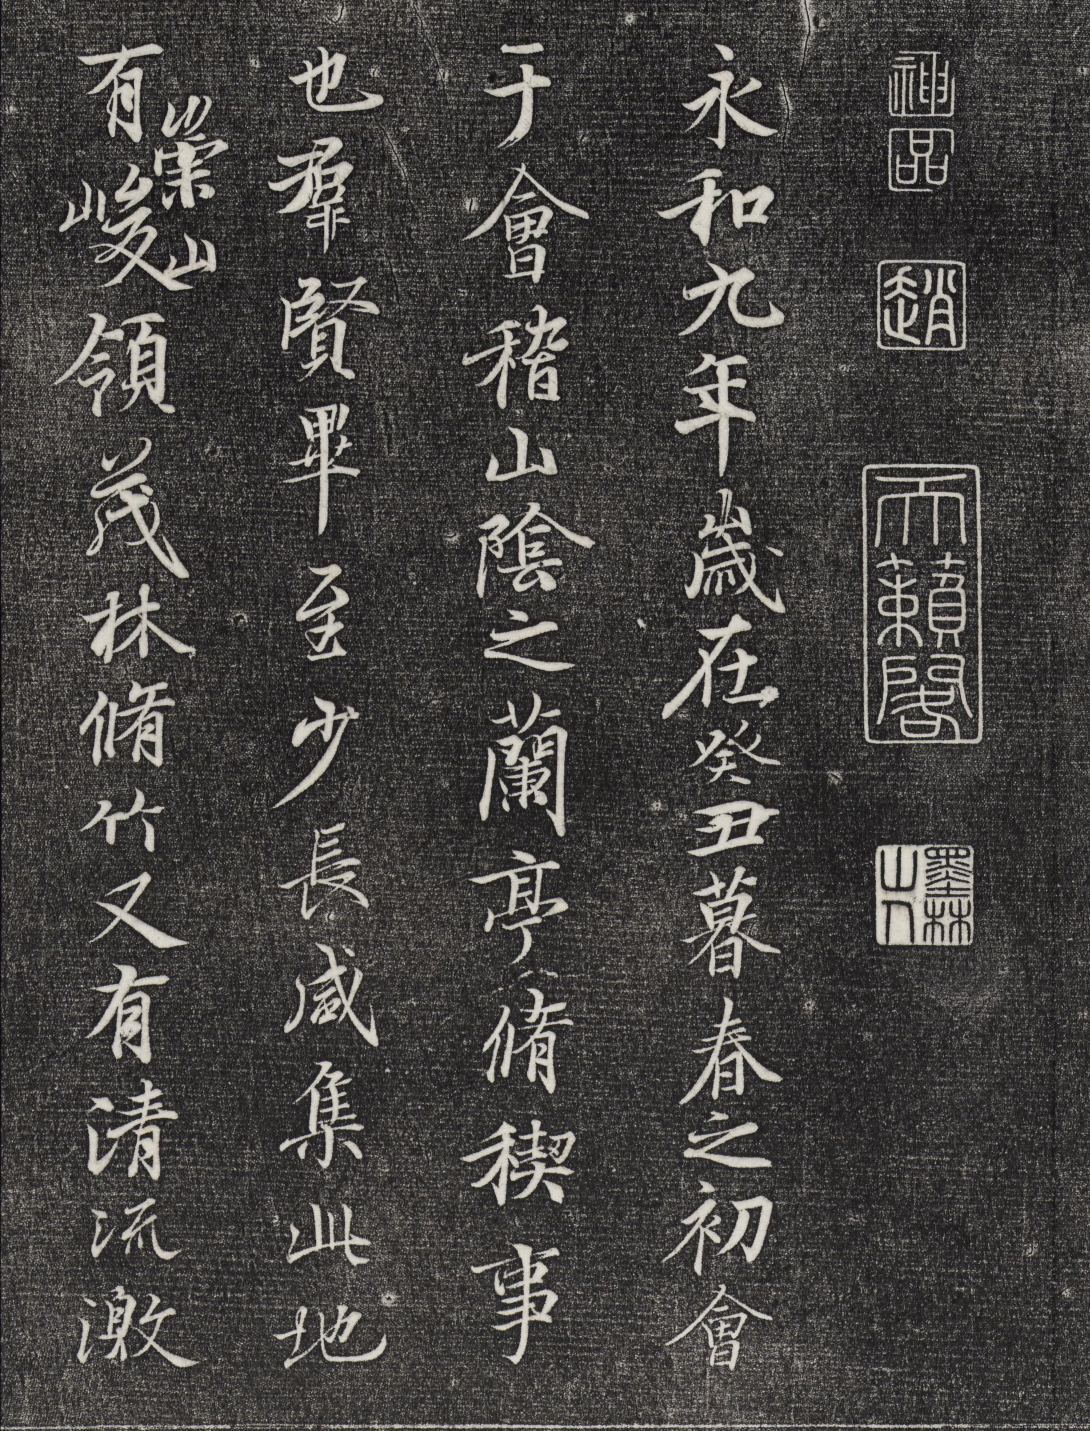 神品
趙
天籟閣
墨林山人
永和九年歲在癸丑暮春之初會
于會稽山陰之蘭亭脩稧事
也羣賢畢至少長咸集此地
有崇山峻領茂林脩竹又有清流激